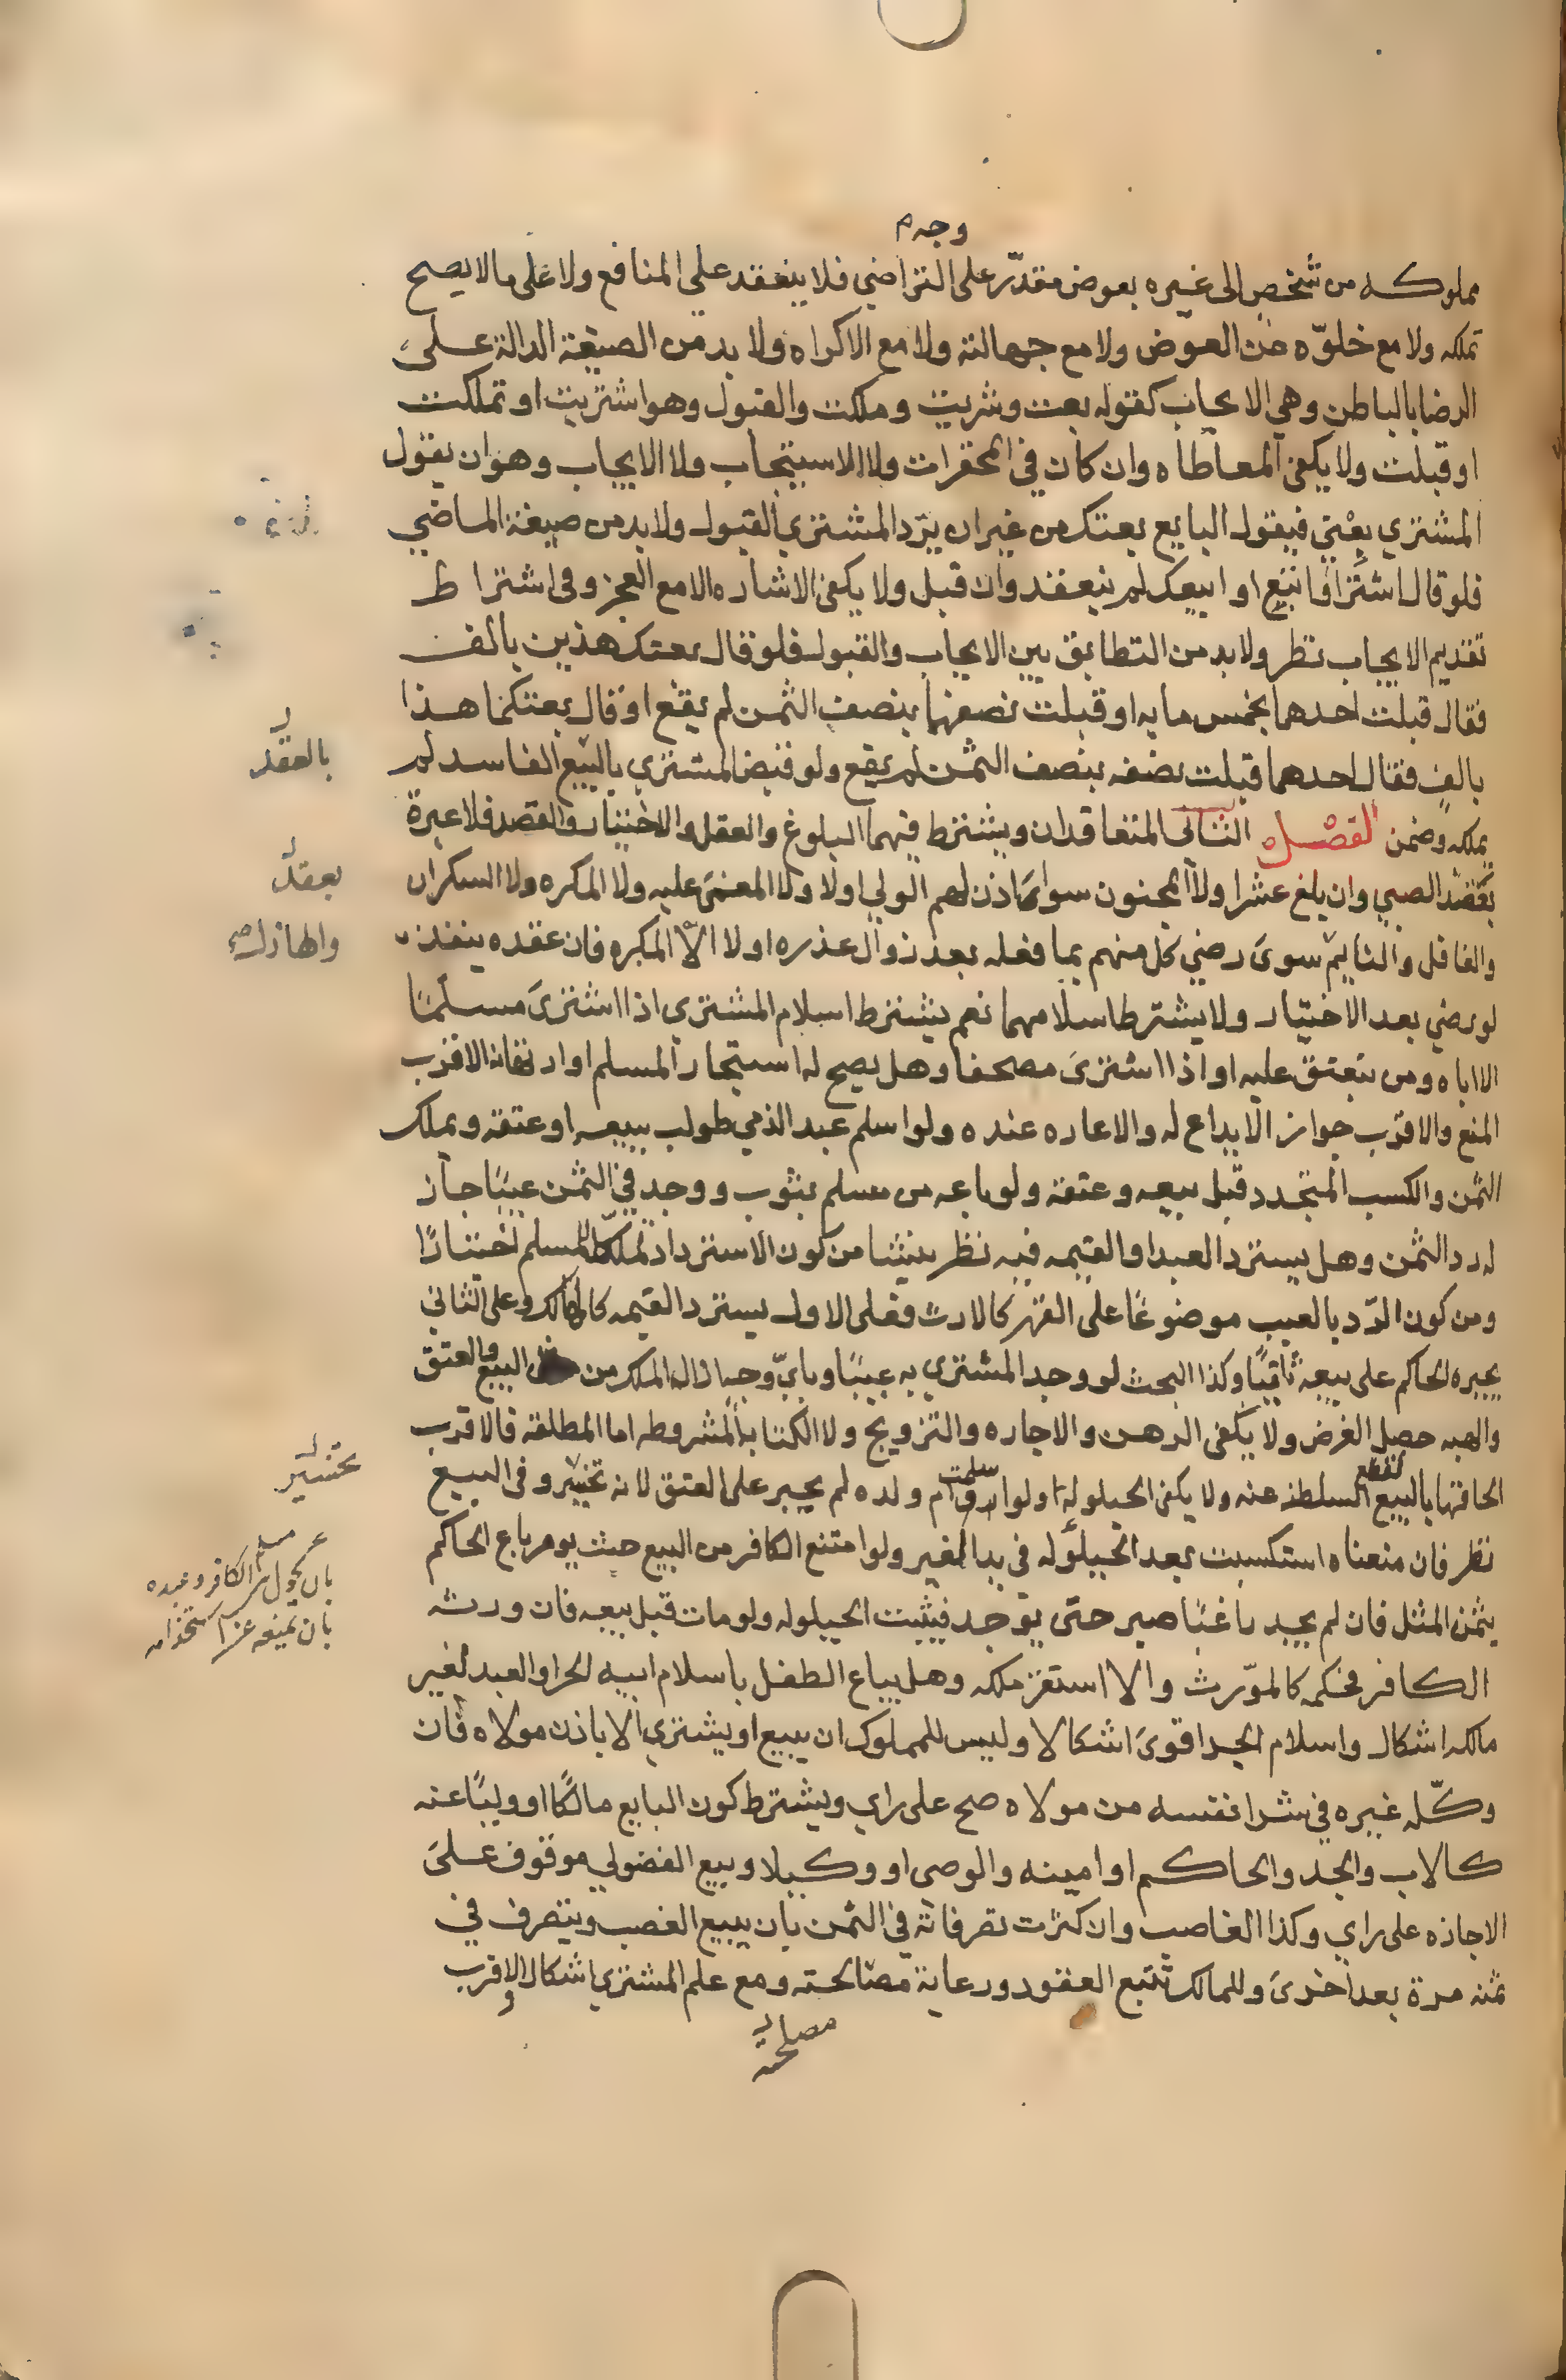 وجه م
مملوكه من شخص الى غيره بعوض مقدّر على التراضي فلا ينعقد على المنافع ولا على ما لا يصح
تملكه ولا مع خلوّه من العوض ولا مع جهالته ولا مع الاكراه ولا بد من الصيغة الدالة على
الرضا بالباطن وهي الايجاب كقوله بعت وشريت وملكت والقبول وهو اشتريت او تملكت
او قبلت ولا يكفي المعاطاه وان كان في المحقرات ولا الاستيجاب ولا الايجاب وهو ان يقول
المشتري بعني فيقول البايع بعتك من غير ان يرد المشتري القبول ولا بد من صيغة الماضي
فلو قال اشتر او ابتع او ابيعك لم ينعقد وان قبل ولا يكفي الاشاره الا مع العجز وفي اشتراط
تقديم الايجاب نظر ولا بد من التطابق بين الايجاب والقبول فلو قال بعتك هذين بالف
فقال قبلت احدهما بخمس مايه او قبلت نصفهما بنصف الثمن لم يقع او قال بعتكما هذا
بالف فقال احدهما قبلت نصفه بنصف الثمن لم يقع ولو قبض المشتري بالبيع الفاسد لم
بالعقد
يملكه وضمن الفصل الثاني المتعاقدان ويشترط فيهما البلوغ والعقل والاختيار والقصد فلا عبرة
بعقد الصبي وان بلغ عشرا ولا المجنون سواء اذن لهم الولي اولا ولا المغمى عليه ولا المكره ولا السكران
بعقد
والغافل والنايم سوى رضي كل منهم بما فعله بعد زوال عذره او لا الّا المكره فان عقده ينفذ
والهازل صح
لو رضي بعد الاختيار ولا يشترط اسلامهما نعم يشترط اسلام المشتري اذا اشترى مسلمًا
الا اباه ومن ينعتق عليه او اذا اشترى مصحفا وهل يصح له استيجار المسلم او ارتهانه الاقرب
المنع والاقرب جواز الايداع له والاعاره عنده ولو اسلم عبد الذمي طولب ببيعه او عتقه ويملك
الثمن والكسب المتجدد قبل بيعه وعتقه ولو باعه من مسلم بثوب ووجد في الثمن عيبًا جاز
له رد الثمن وهل يسترد العبد او القيمه فيه نظر ينشا من كون الاسترداد تملكًا للمسلم اختيارًا
ومن كون الرّد بالعيب موضوعًا على القهر كالارث فعلى الاول يسترد القيمه كالهالك وعلى الثاني
يجبره الحاكم على بيعه ثانيًا وكذا البحث لو وجد المشتري به عيبًا وباي وجه ازال الملك من البيع والعتق
والهبه حصل الغرض ولا يكفي الرهن والاجاره والتزويج ولا الكتابه المشروطه اما المطلقة فالاقرب
الحاقها بالبيع لقطع السلطنه عنه ولا يكفي الحيلوله ولو اسلمت ام ولده لم يجبر على العتق لانه تخيير وفي البيع
تخسير
نظر فان منعناه استكسبت بعد الحيلوله في يد الغير ولو امتنع الكافر من البيع حيث يومر باع الحاكم
بان يحول بين الكافر وعبده
بثمن المثل فان لم يجد راغبًا صبر حتى يوجد فيثبت الحيلوله ولو مات قبل بيعه فان ورثه
بان يمنعه عن استخدامه
الكافر فحكمه كالمورث والا استقر ملكه وهل يباع الطفل باسلام ابيه الحر او العبد لغير
مالكه اشكال واسلام الجد اقوى اشكالا وليس للمملوك ان يبيع او يشتري الا باذن مولاه فان
وكّله غيره في شرا نفسه من مولاه صح على راي ويشترط كون البايع مالكًا او وليًا عنه
كالاب والجد والحاكم او امينه والوصي او وكيلا وبيع الفضولي موقوف على
الاجازه على راي وكذا الغاصب وان كثرت تصرفاته في الثمن بان يبيع الغصب ويتصرف في
ثمنه مرة بعد اخرى وللمالك تتبع العقود ورعاية مصالحته ومع علم المشتري اشكال الاقرب
مصلحته